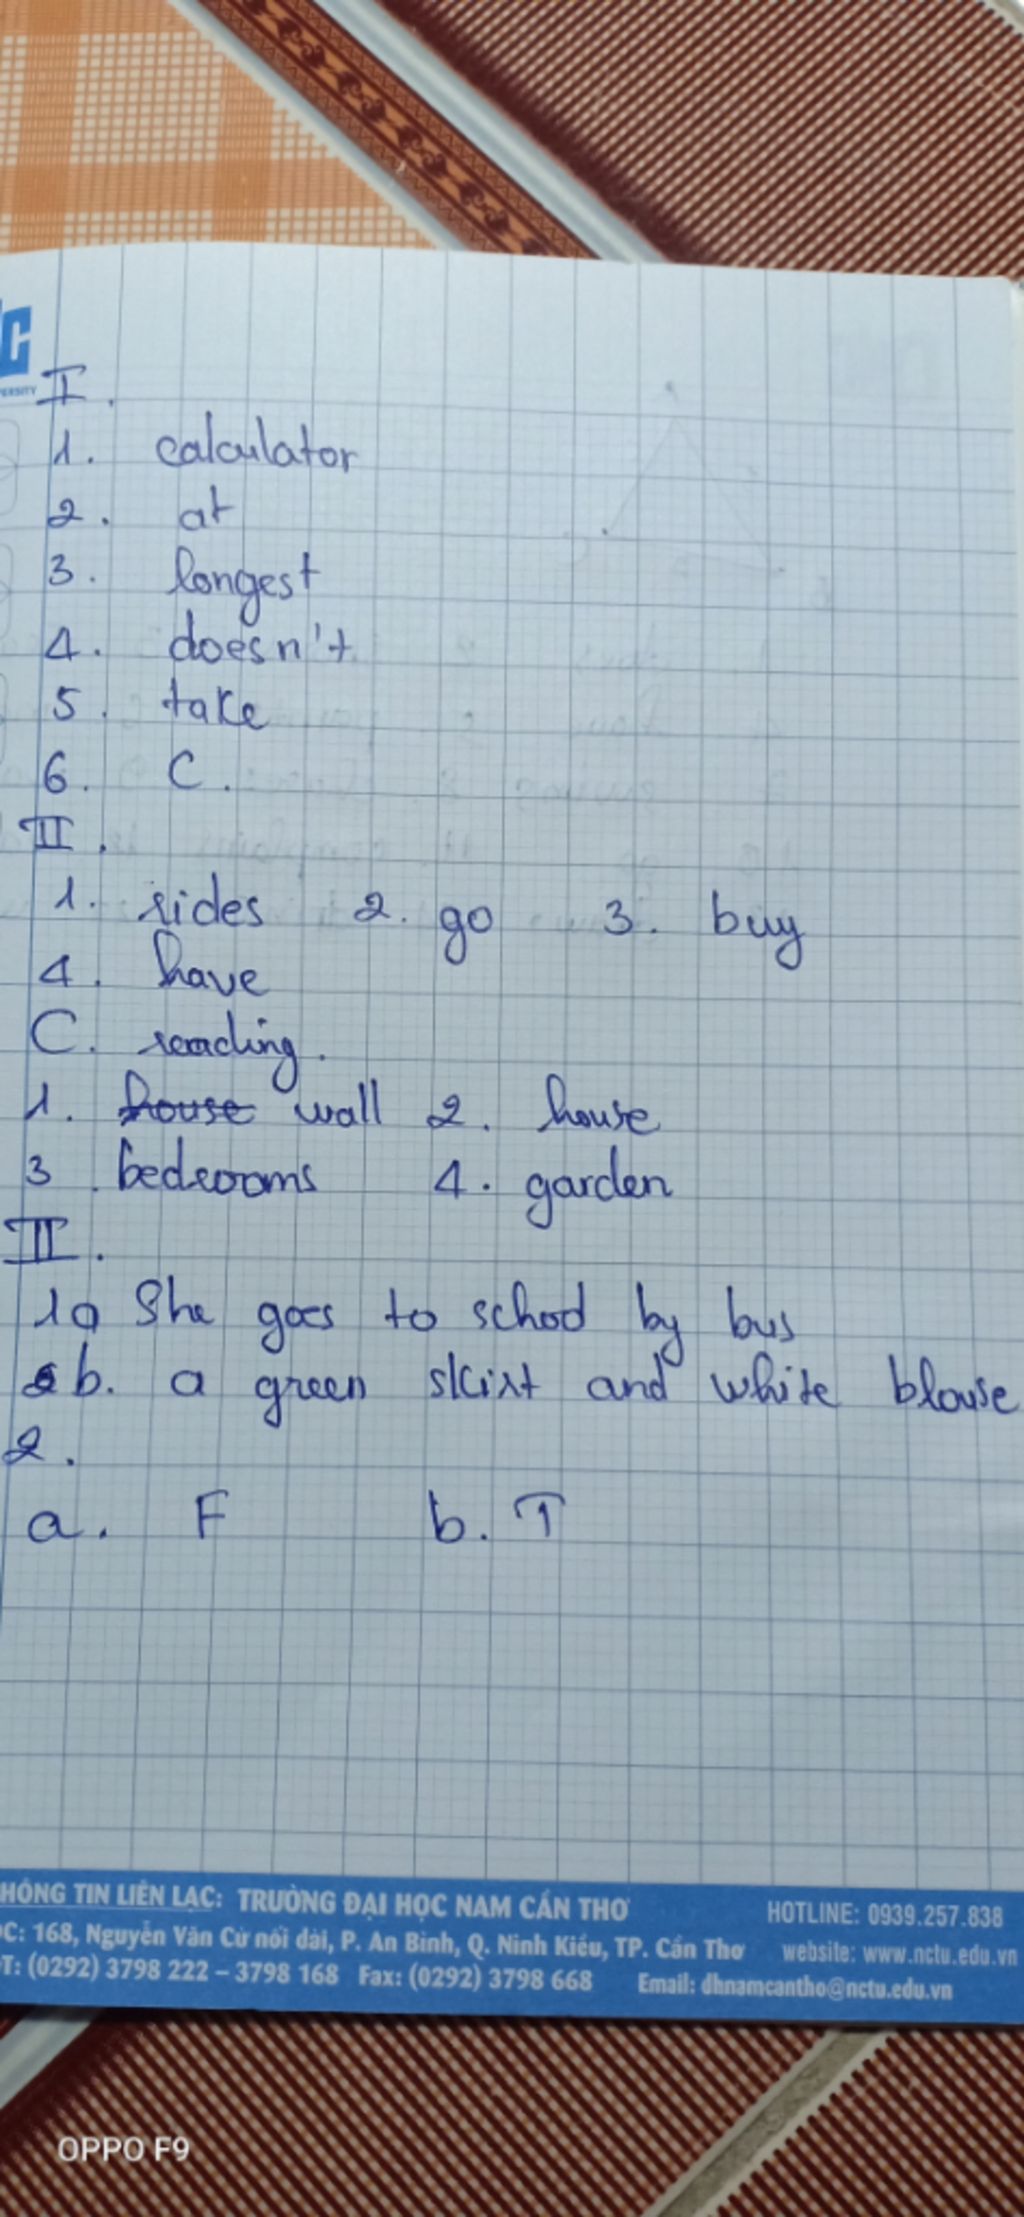 C
ERSITY
I.
1. calculator
2. at
3. longest
4. doesn't
5. take
6. C.
II.
1. rides 2. go 3. buy
4. have
C. reading.
1. house wall 2. house
3. bedrooms 4. garden
II.
1a She goes to school by bus
b. a green skirt and white blouse
2.
a. F b. T
HÔNG TIN LIÊN LẠC: TRƯỜNG ĐẠI HỌC NAM CẦN THƠ HOTLINE: 0939.257.838
C: 168, Nguyễn Văn Cừ nối dài, P. An Bình, Q. Ninh Kiều, TP. Cần Thơ website: www.nctu.edu.vn
T: (0292) 3798 222 – 3798 168 Fax: (0292) 3798 668 Email: dhnamcantho@nctu.edu.vn
OPPO F9